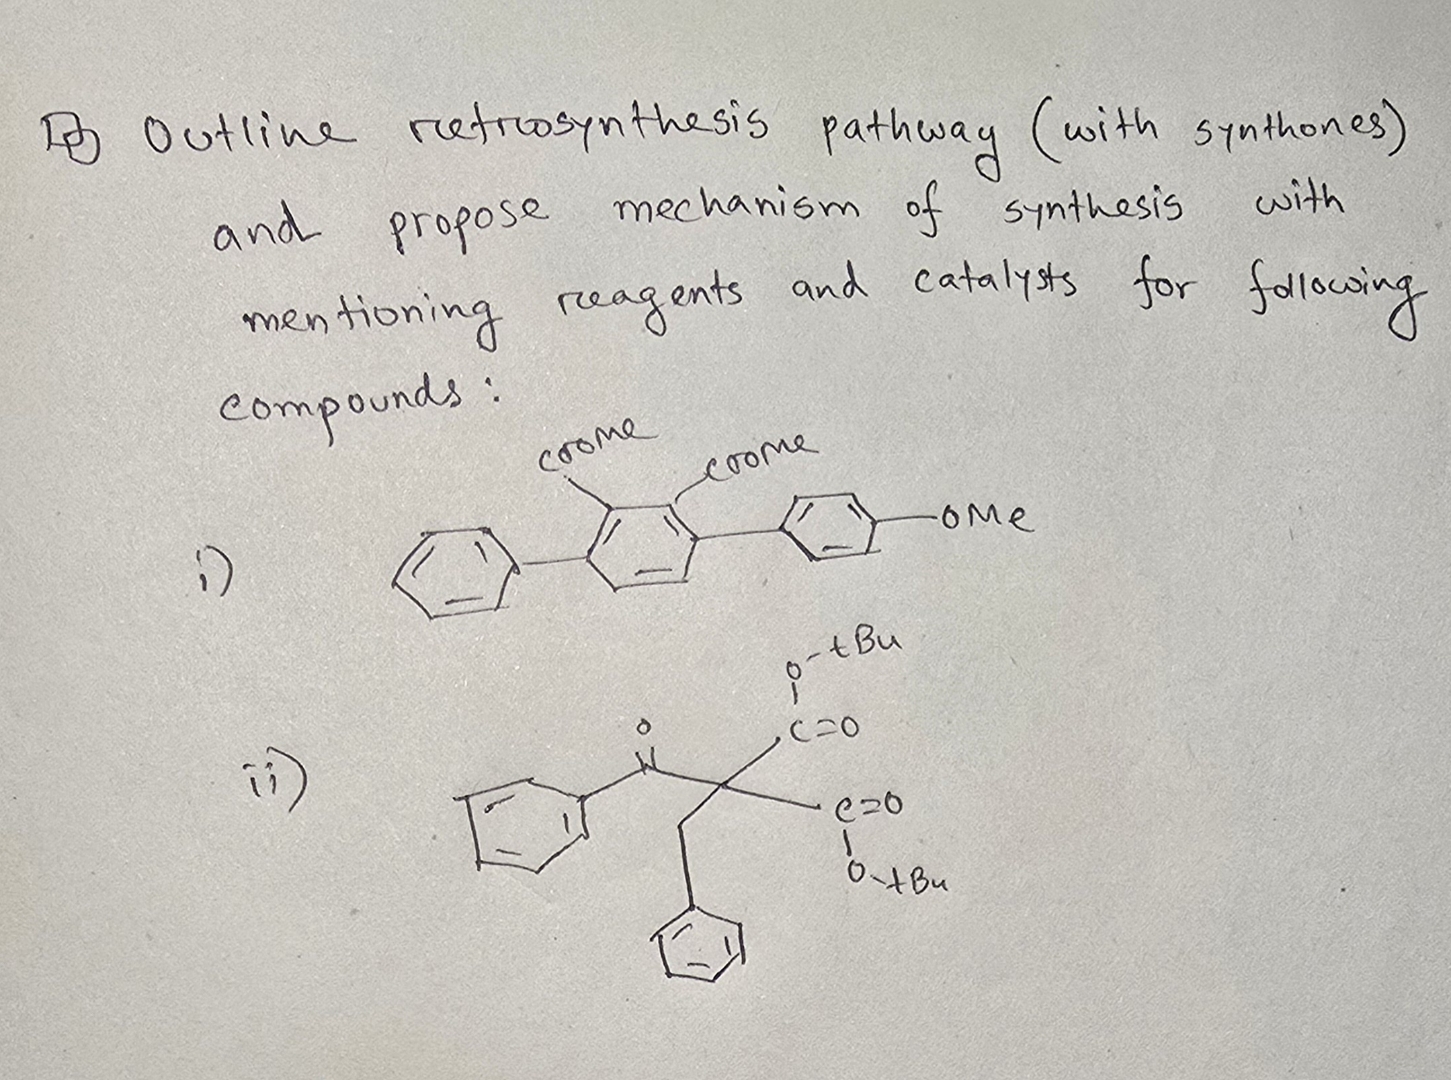 Outline retrosynthesis pathway (with synthones)
and propose mechanism of synthesis with
mentioning reagents and catalysts for following
compounds:
COOMe
COOMe
i)
OMe
O-tBu
O
C=O
ii)
C=O
O-tBu